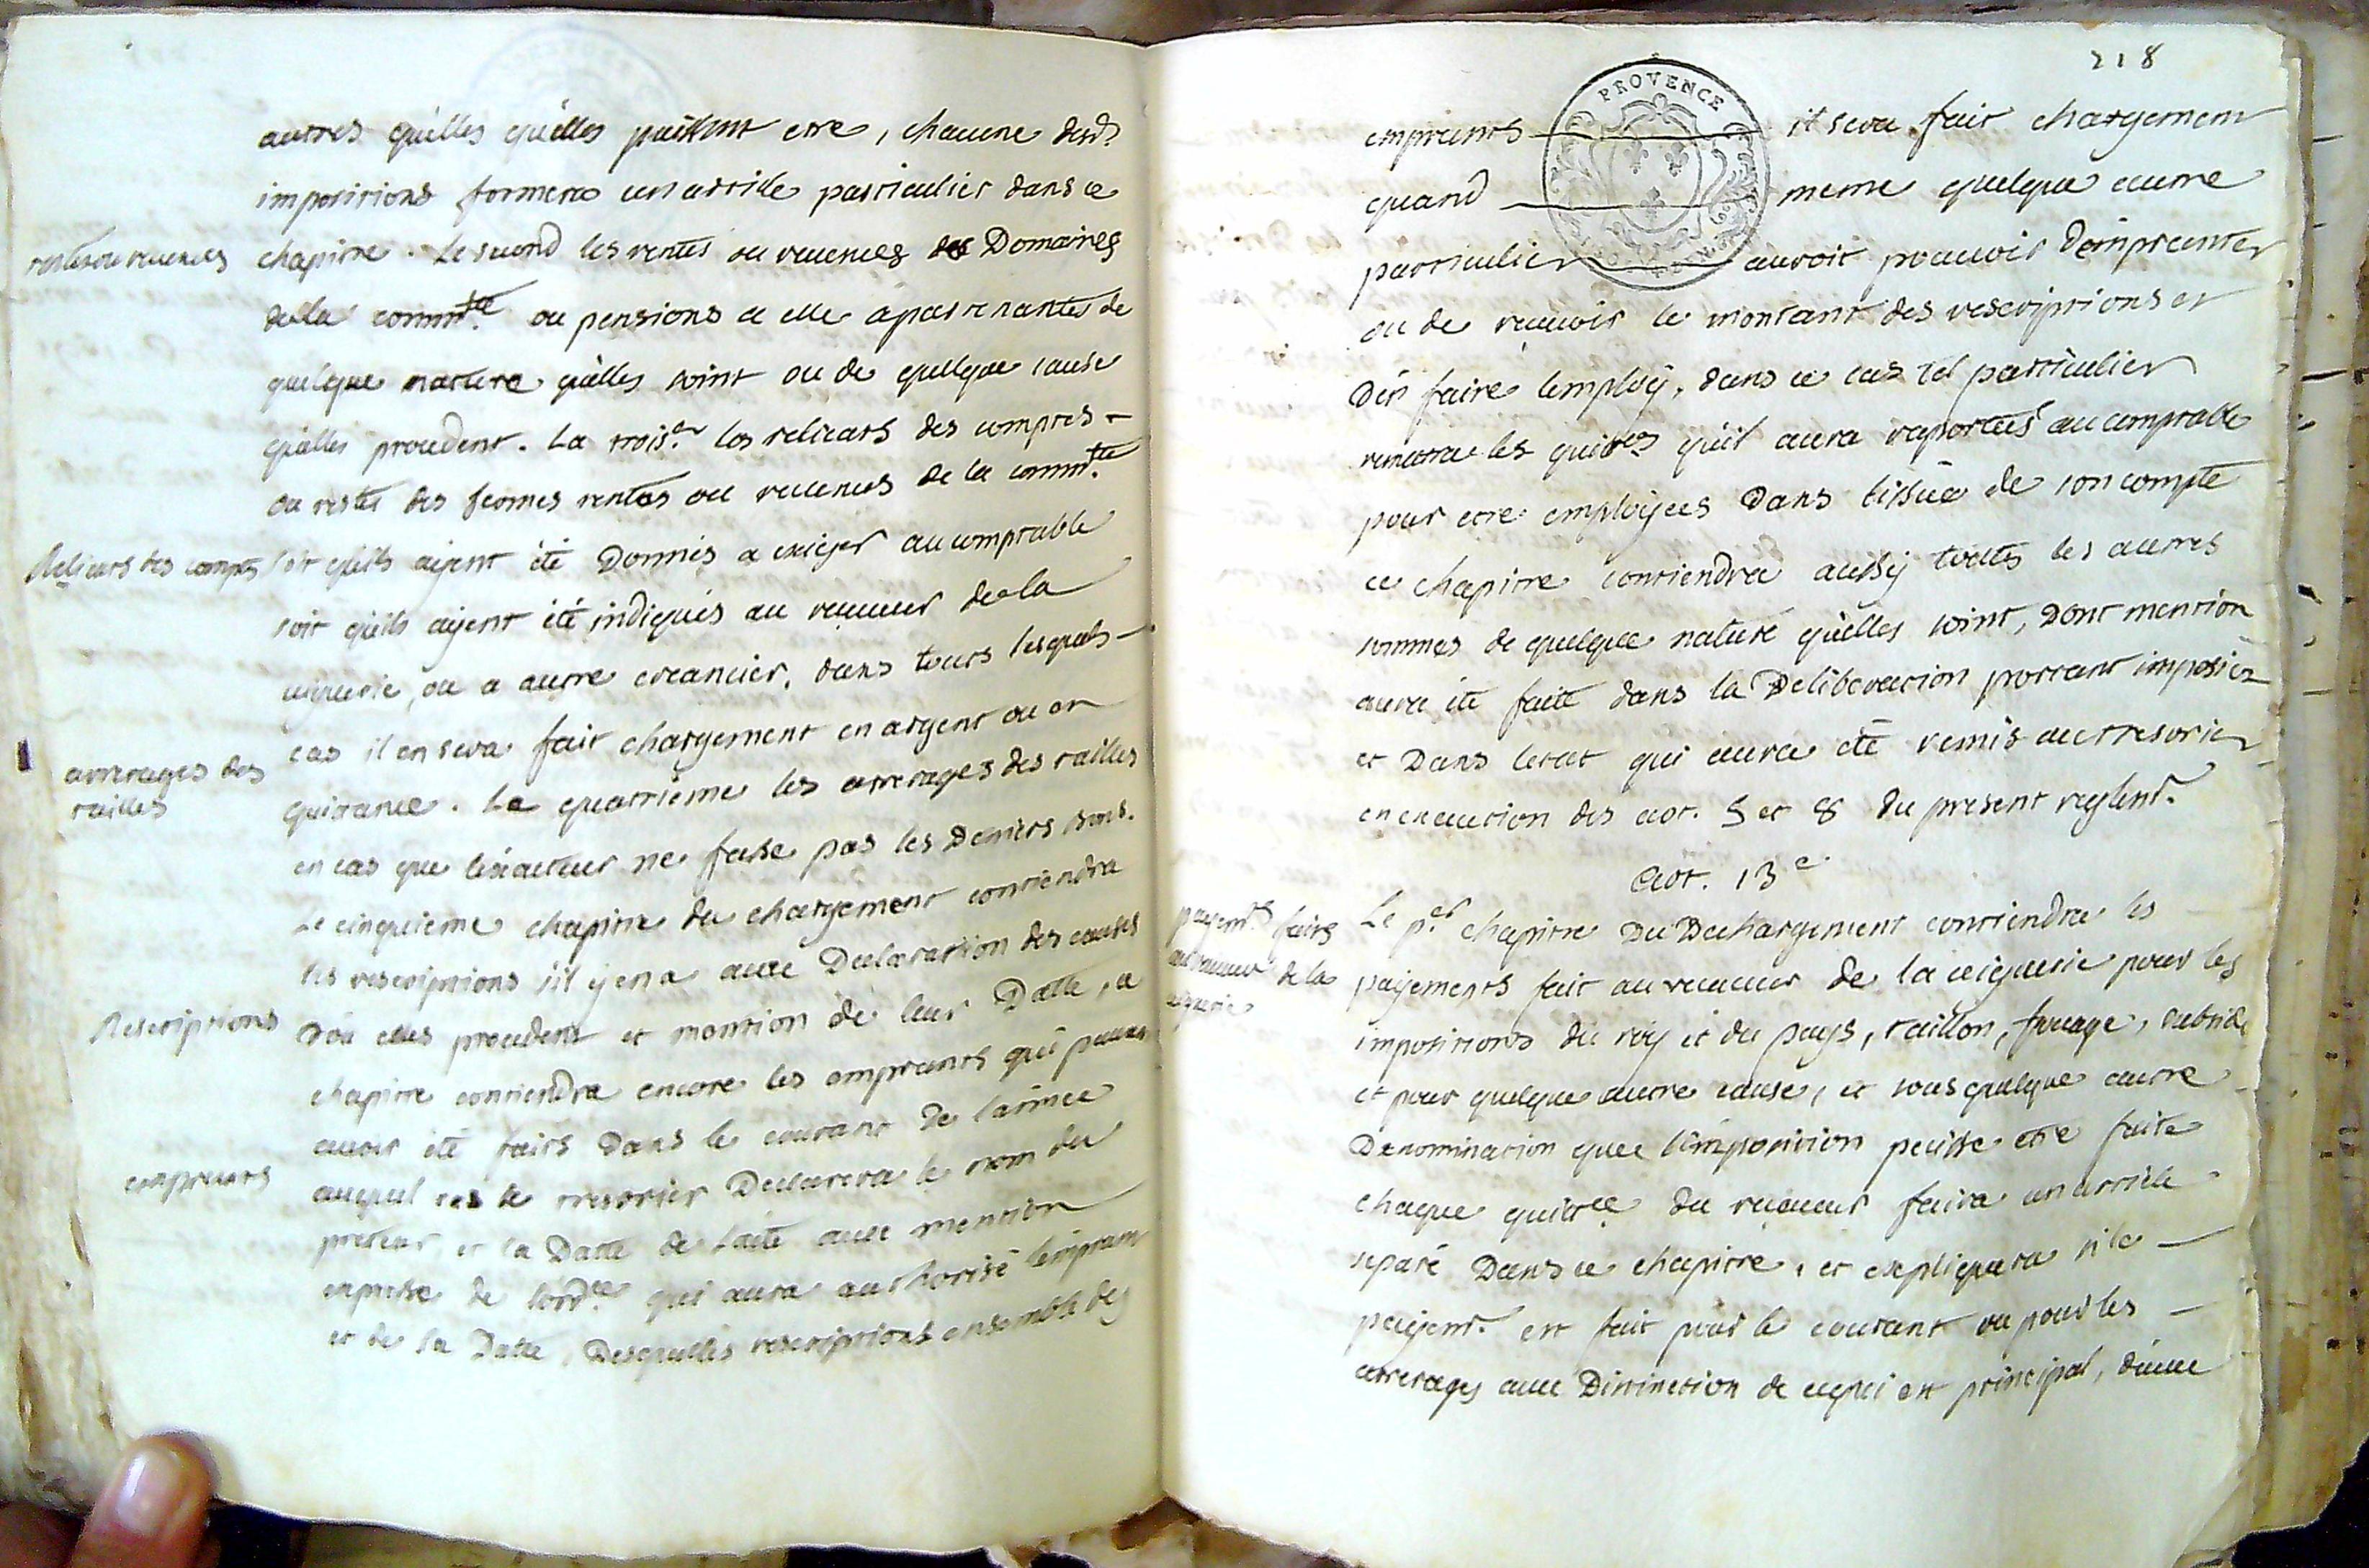 autres quelles quelles puissent etre, chacune desd.
impositions formera un article particulier dans ce
rentes ou revenus
chapitre. Le second les rentes ou revenues des Domaines
de la commté. ou pensions a elle apartenantes de
quelque nature quelles soint ou de quelque cause
quelles procedent. La trois.e les relicats des comptes
ou restes des fermes rentes ou revenus de la commté.
Relicats des comptes
soit quils ayent été Donnés a exiger au comptable
soit quils ayent été indiqués au receveur de la
viguerie, ou a autre creancier. dans tours lesquels
cas il en sera fait chargement en argent ou en
arrerages des
tailles
quitance. Le quatrieme les arrerages des tailles
en cas que lexacteur ne fasse pas les Deniers bons.
Le cinquieme chapitre du chargement contiendra
les rescriptions s'il y en a avec Declaration des causes
Rescriptions
Dou elles procedent et mention de leur Datte, ce
chapitre contiendra encore les emprunts qui
avoir été faits Dans le courant de l'année
emprunts
auquel cas le tresorier Declarera le nom du
preteur et la Datte de lacte avec mention
expresse de lordce. qui aura authorisé l'emprunt
et de sa Datte, Desquelles rescriptions ensemble des
218
PROVENCE
emprunts il sera fait chargement
quand meme quelque autre
particulier auroit pouvoir d'emprunter
ou de recevoir le montant des rescriptions et
Den faire l'employ, dans ce cas tel particulier
remettra les quitces quil aura raportées au comptable
pour etre employees Dans lissüe de son compte
ce chapitre contiendra aussy toutes les autres
sommes de quelque nature quelles soint, Dont mention
aura été faite dans la Deliberation portant imposion
et Dans letat qui aura été remis au tresorier
en execution des art. 5 et 8 du present reglemt.
Art. 13e.
payemts. faits
au receveur de la
viguerie
Le per. chapitre Du Dechargement contiendra les
payements fait au receveur de la viguerie pour les
impositions du roy et du pays, taillon, fouage, subside
et pour quelque autre cause, et sous quelque autre
Denomination que l'imposition puisse etre faite
chaque quitce du receveur faira un article
separé Dans ce chapitre, et expliquera si le
payemt. est fait pour le courant ou pour les
arrerages avec Distinction de ce qui est principal, d'avec